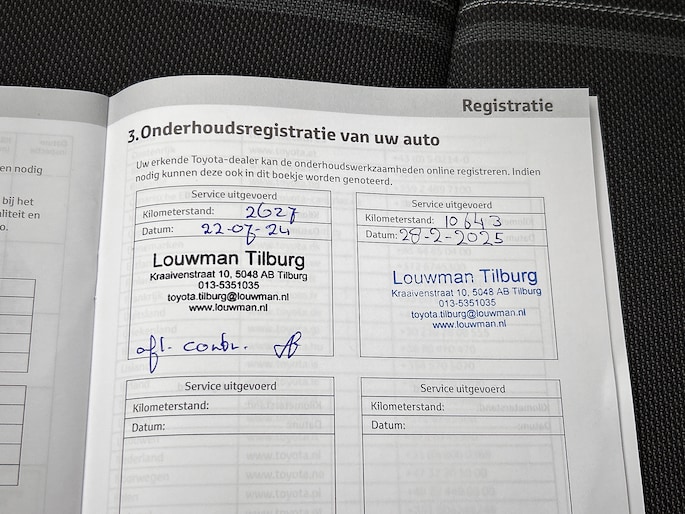 Registratie
3. Onderhoudsregistratie van uw auto
Uw erkende Toyota-dealer kan de onderhoudswerkzaamheden online registreren. Indien
nodig kunnen deze ook in dit boekje worden genoteerd.
Service uitgevoerd
Kilometerstand: 2627
Datum: 22-07-24
Louwman Tilburg
Kraaivenstraat 10, 5048 AB Tilburg
013-5351035
toyota.tilburg@louwman.nl
www.louwman.nl
afl. contr.
Service uitgevoerd
Kilometerstand: 10643
Datum: 28-2-2025
Louwman Tilburg
Kraaivenstraat 10, 5048 AB Tilburg
013-5351035
toyota.tilburg@louwman.nl
www.louwman.nl
Service uitgevoerd
Kilometerstand:
Datum:
Service uitgevoerd
Kilometerstand:
Datum:
en nodig
bij het
liteit en
o.